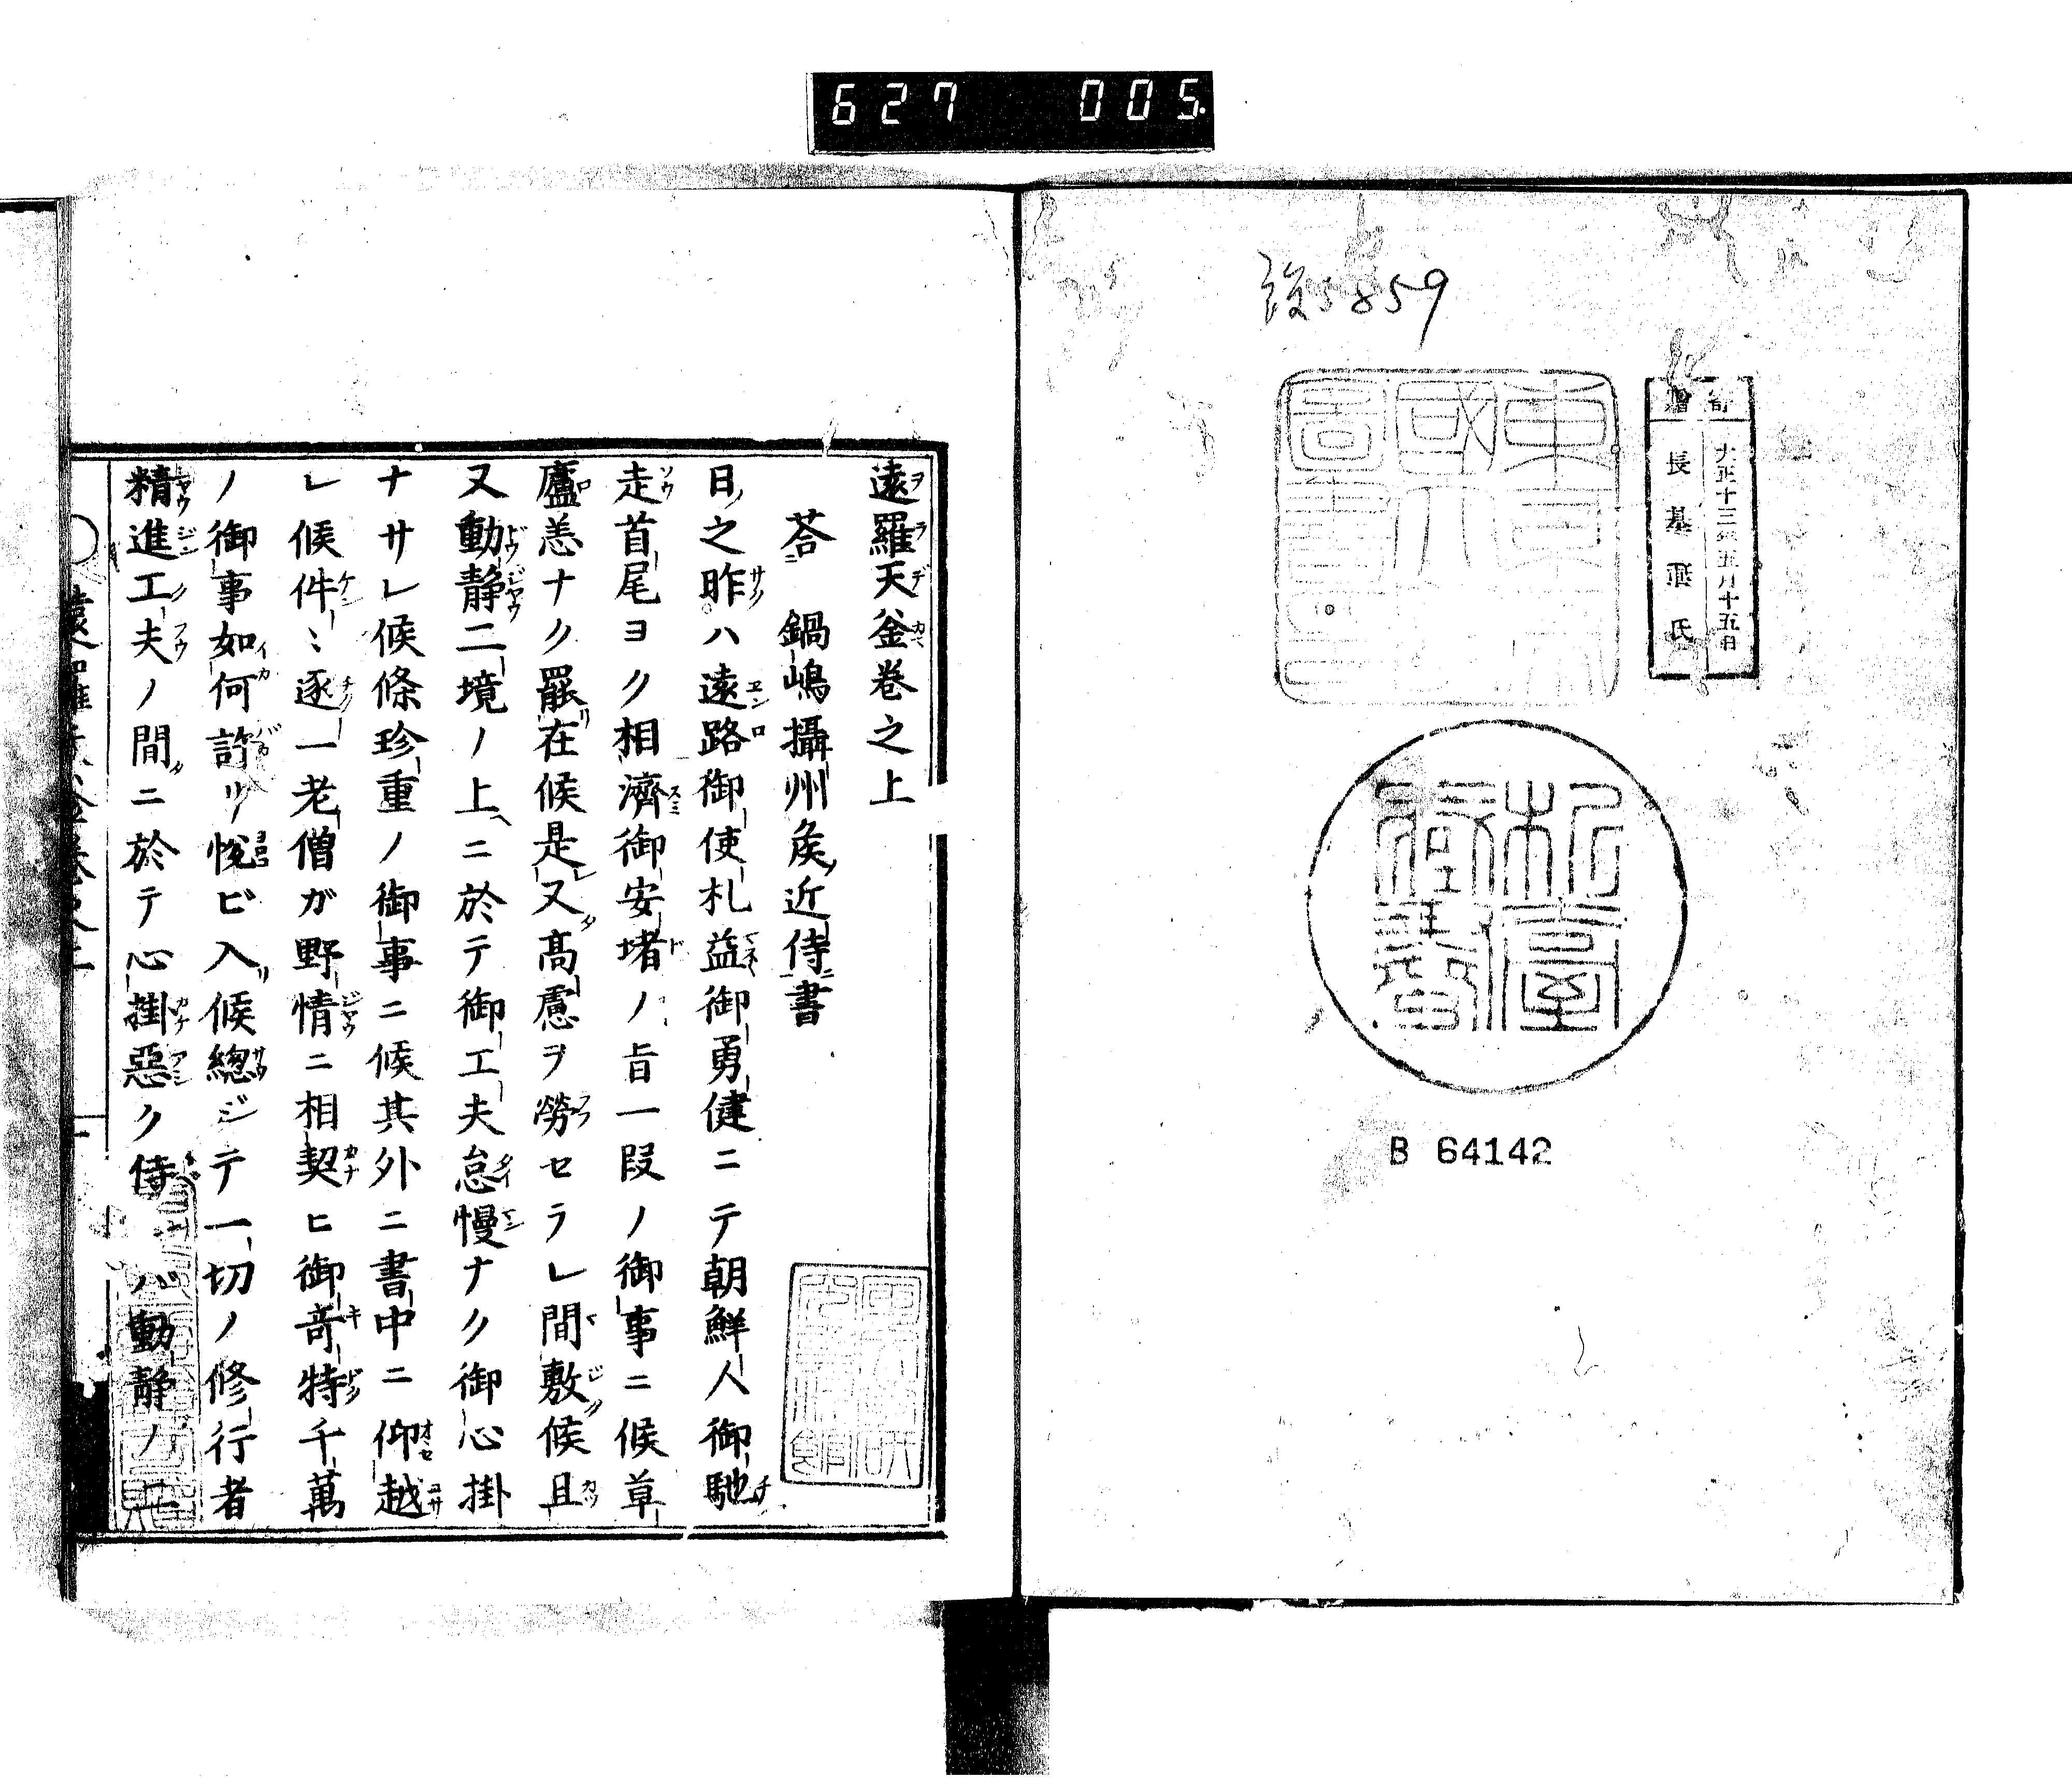 627 005
5859
東京
國
圖書
寄贈
大正十三年五月十五日
長基
氏
B 64142
遠羅天釜巻之上
荅鍋嶋攝州矦近侍書
日之昨ハ遠路御使札益御勇健ニテ朝鮮人御馳
走首尾ヨク相濟御安堵ノ旨一段ノ御事ニ候草
廬恙ナク罷在候是又髙慮ヲ勞セラレ間敷候且
又動静二境ノ上ニ於テ御工夫怠慢ナク御心掛
ナサレ候條珍重ノ御事ニ候其外ニ書中ニ仰越
レ候件〻逐一老僧ガ野情ニ相契ヒ御竒特千萬
ノ御事如何許リ悅ビ入候總ジテ一切ノ修行者
精進工夫ノ間ニ於テ心掛惡ク侍バ動静ノ二